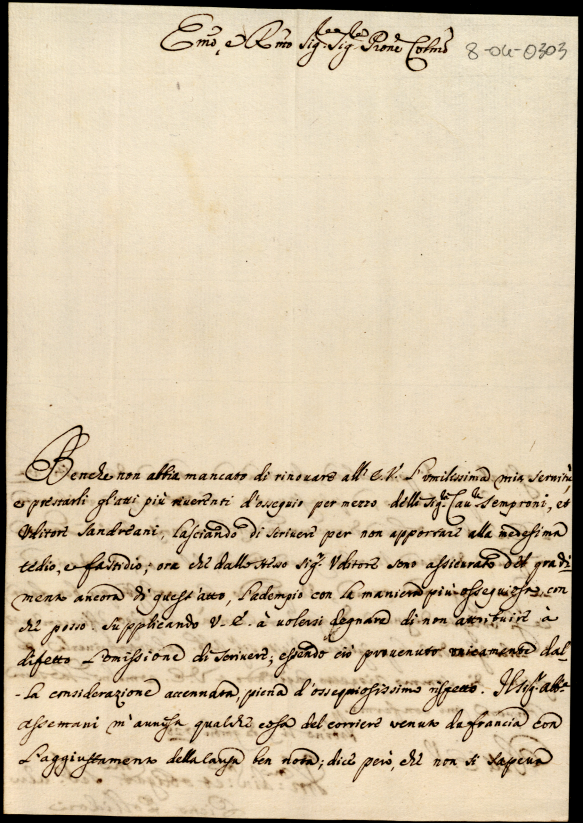 Emo, e Rmo Sig.re Sig.re Prone Colmo
8-04-0303
Benche non abbia mancato di rinouare all' E.V. l'umilissima mia seruitù,
e prestarli gl'atti più reuerenti d'ossequio per mezzo delli Sig.ri Cau.re Semproni, et
Vditore Sandreani, lasciando di scriuere per non apportare alla medesima
tedio, e fastidio; ora che dallo stesso Sig.r Vditore sono assicurato del gradi-
mento ancora di quest'atto, l'adempio con la maniera più ossequiosa, con
che posso. Supplicando V.E. à uolersi degnare di non attribuire à
difetto l'omissione di scriuere, essendo ciò prouenuto unicamente dal-
-la considerazione accennata, piena d'ossequiosissimo rispetto. Il Sig.r Ab.te
Assemani m'auuisa qualche cosa del corriere uenuto da francia con
l'aggiustamento della causa ben nota; dice però, che non si sapeua